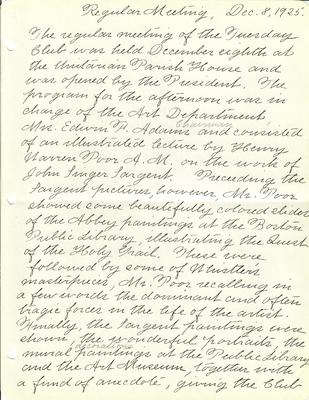 Regular Meeting, Dec. 8, 1925.
The regular meeting of the Tuesday
Club was held December eighth at
the Unitarian Parish House and
was opened by the President. The
program for the afternoon was in
charge of the Art Department,
Chairman
Mrs. Edwin F. Adams and consisted
of an illustrated lecture by Henry
Warren Poor A.M. on the work of
John Singer Sargent. Preceeding the
Sargent pictures, however, Mr. Poor
showed some beautifully colored slides
of the Abbey paintings at the Boston
Public Library, illustrating the Quest
of the Holy Grail. These were
followed by some of Whistler's
masterpieces, Mr. Poor recalling in
a few words the dominant and often
tragic forces in the life of the artist.
Finally, the Sargent paintings were
shown, the wonderful portraits, the
decorations
mural paintings at the Public Library
and the Art Museum, together with
a fund of anecdote, giving the Club